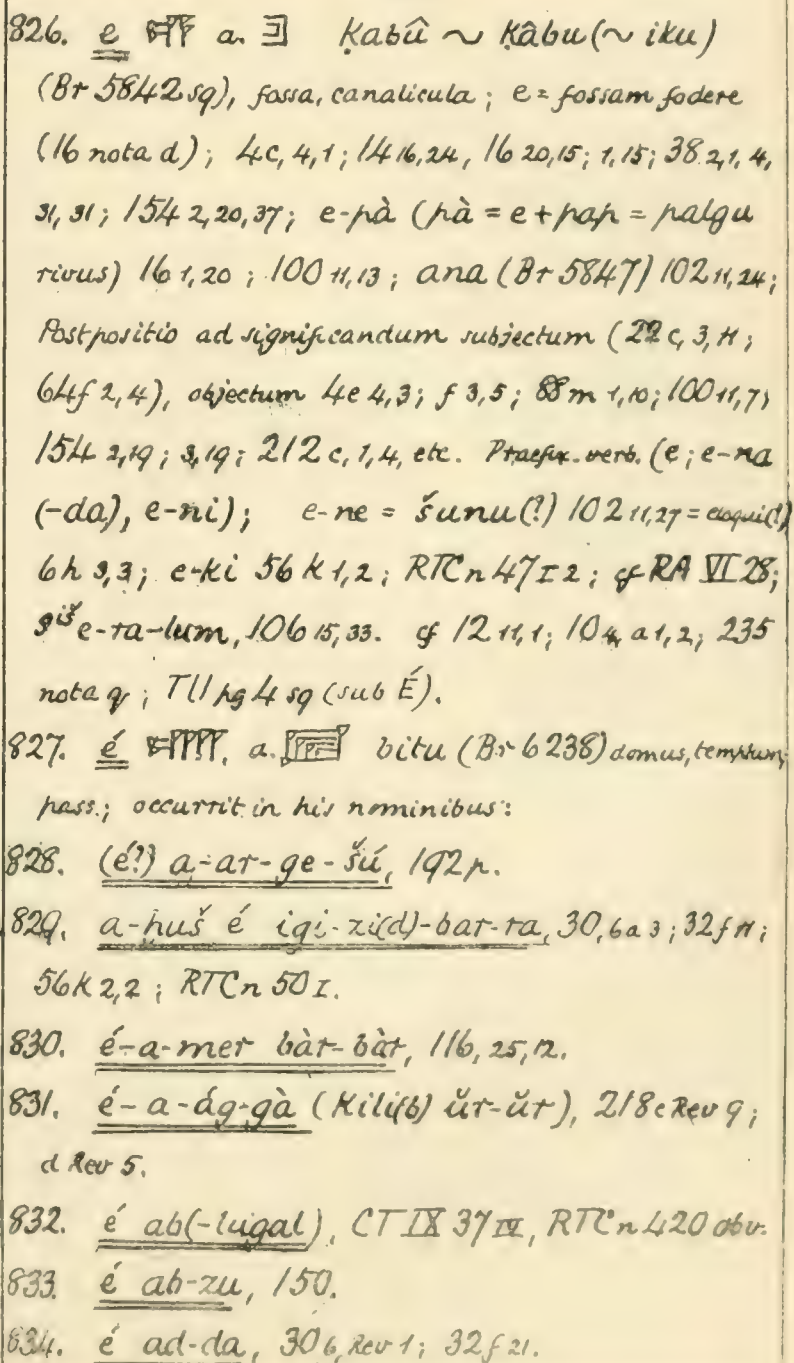 826. e 𒂊 a. Ḳabû ~ Ḳâbu (~ iku)
(Br 5842 sq), fossa, canalicula; e = fossam fodere
(16 nota d); 4c, 4,1; 14 16,24, 16 20,15; 1,15; 38 2,1, 4,
31, 31; 154 2,20,37; e-pà (pà = e+pap = palgu
rivus) 16 1,20; 100 11,13; ana (Br 5847) 102 11,24;
Postpositio ad significandum subjectum (22 c, 3, 11;
64f 2,4), objectum 4e 4,3; f 3,5; 88m 1,10; 100 11,7;
154 2,19; 3,19; 212 c, 1,4, etc. Praefix. verb. (e; e-na
(-da), e-ni); e-ne = šunu(?) 102 11,27 =
6h 3,3; e-ki 56 k 1,2; RTC n 47 I 2; cf RA VI 28;
giš e-ra-lum, 106 15,33. cf 12 11,1; 10 4, a 1,2; 235
nota q; TU pg 4 sq (sub É).
827. é 𒂍, a. bitu (Br 6238) domus, templum,
pass.; occurrit in his nominibus:
828. (é?) a-ar-ge-šú, 192p.
829. a-ḫuš é igi-zi(d)-bar-ra, 30, 6a 3; 32f 11;
56k 2,2; RTC n 50 I.
830. é-a-mer bàr-bàr, 116, 25,12.
831. é-a-ág-gà (Kili(b) ŭr-ŭr), 218c Rev 9;
d Rev 5.
832. é ab(-lugal), CT IX 37 IV, RTC n 420 obv.
833. é ab-zu, 150.
834. é ad-da, 30 6, Rev 1; 32f 21.